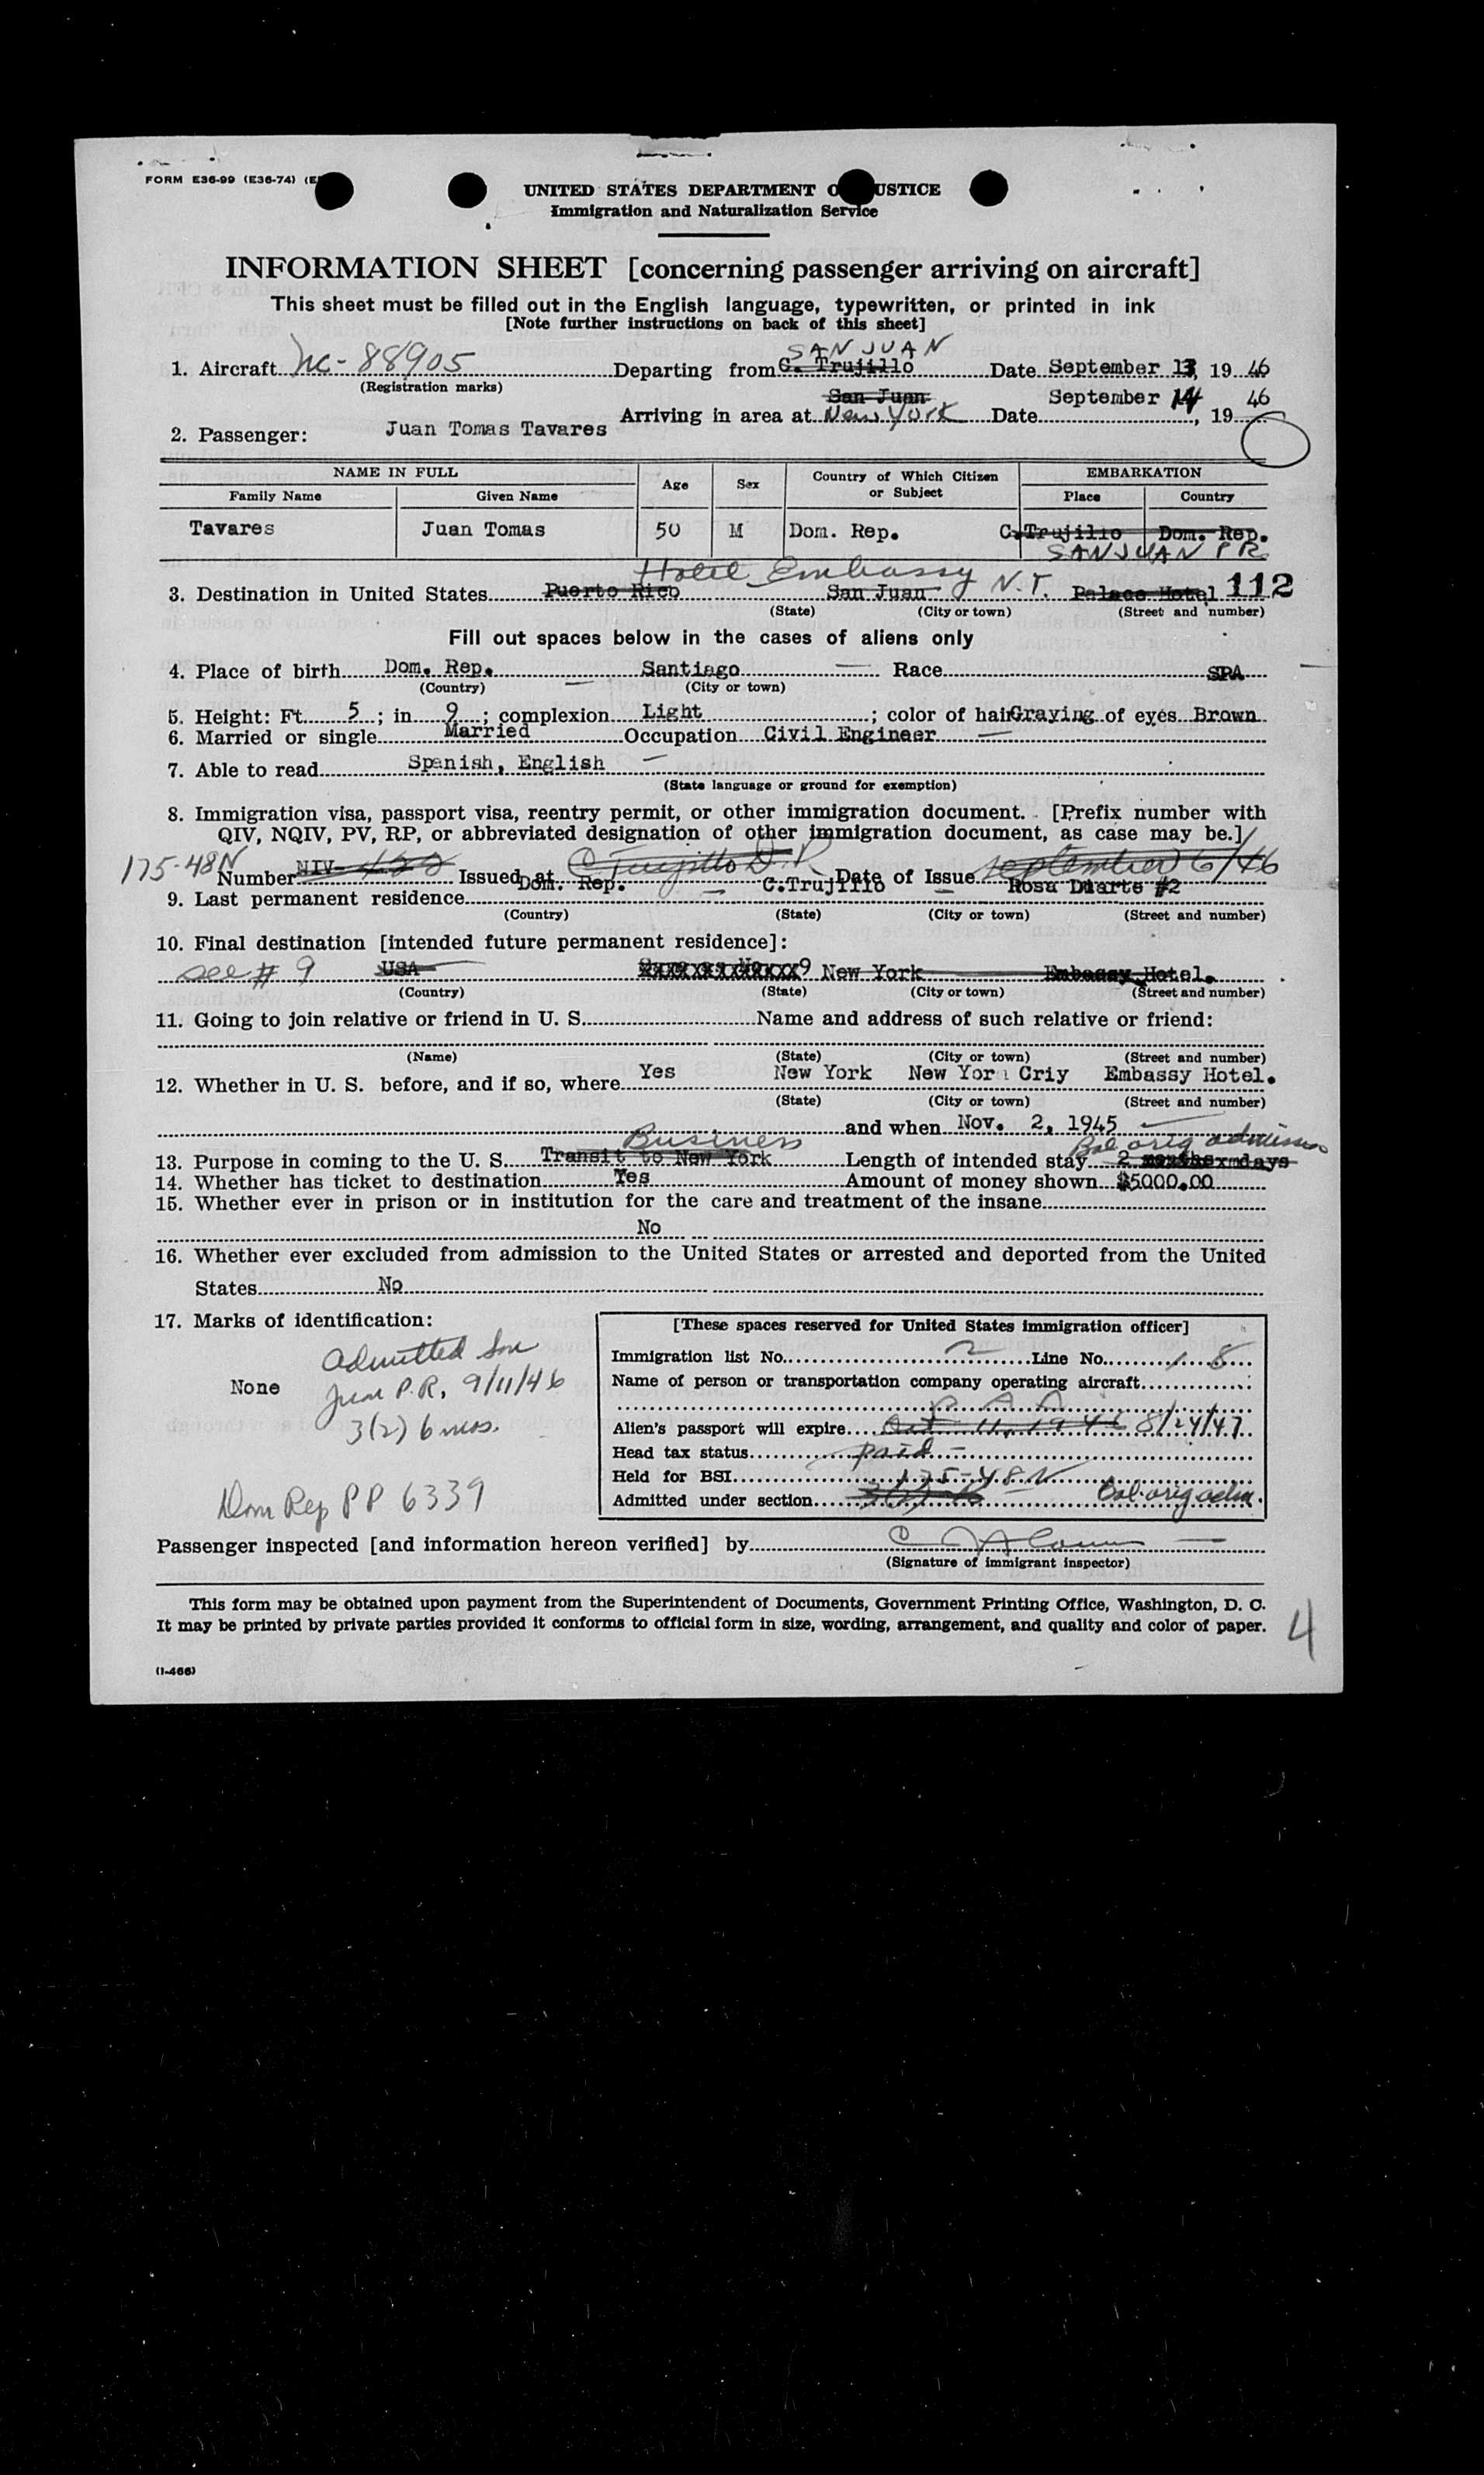 FORM E36-99 (E36-74)
UNITED STATES DEPARTMENT O USTICE
Immigration and Naturalization Service
INFORMATION SHEET [concerning passenger arriving on aircraft]
This sheet must be filled out in the English language, typewritten, or printed in ink
[Note further instructions on back of this sheet]
SAN JUAN
1. Aircraft NC-88905 Departing from C. Trujillo Date September 13, 19 46
(Registration marks)
San Juan September 14 46
Arriving in area at New York Date , 19
2. Passenger: Juan Tomas Tavares
NAME IN FULL Age Sex Country of Which Citizen or Subject EMBARKATION
Family Name Given Name Place Country
Tavares Juan Tomas 50 M Dom. Rep. C.Trujillo Dom. Rep.
SAN JUAN PR
Hotel Embassy N.Y.
3. Destination in United States Puerto Rico San Juan Palace Hotel 112
(State) (City or town) (Street and number)
Fill out spaces below in the cases of aliens only
4. Place of birth Dom. Rep. Santiago Race SPA
(Country) (City or town)
5. Height: Ft. 5 ; in 9 ; complexion Light ; color of hair Graying of eyes Brown
6. Married or single Married Occupation Civil Engineer
7. Able to read Spanish, English
(State language or ground for exemption)
8. Immigration visa, passport visa, reentry permit, or other immigration document. [Prefix number with
QIV, NQIV, PV, RP, or abbreviated designation of other immigration document, as case may be.]
175-48N Number NIV Issued at C Trujillo D.R Date of Issue September 6/46
9. Last permanent residence Dom. Rep. C.Trujillo Rosa Duarte #2
(Country) (State) (City or town) (Street and number)
10. Final destination [intended future permanent residence]:
see # 9 USA New York Embassy Hotel.
(Country) (State) (City or town) (Street and number)
11. Going to join relative or friend in U. S. Name and address of such relative or friend:
(Name) (State) (City or town) (Street and number)
12. Whether in U. S. before, and if so, where Yes New York New Yor Criy Embassy Hotel.
(State) (City or town) (Street and number)
and when Nov. 2, 1945
Business Bal orig admission
13. Purpose in coming to the U. S. Transit to New York Length of intended stay 2 days
14. Whether has ticket to destination Yes Amount of money shown $5000.00
15. Whether ever in prison or in institution for the care and treatment of the insane
No
16. Whether ever excluded from admission to the United States or arrested and deported from the United
States No
17. Marks of identification:
None
Admitted San
Juan P.R. 9/11/46
3(2) 6 mos.
Dom Rep PP 6339
[These spaces reserved for United States immigration officer]
Immigration list No. 2 Line No. 8
Name of person or transportation company operating aircraft
P A A
Alien's passport will expire Oct 11, 1946 8/24/47
Head tax status paid
Held for BSI 175-48N
Admitted under section 3(2) Bal. orig adm.
Passenger inspected [and information hereon verified] by
(Signature of immigrant inspector)
This form may be obtained upon payment from the Superintendent of Documents, Government Printing Office, Washington, D. C.
It may be printed by private parties provided it conforms to official form in size, wording, arrangement, and quality and color of paper.
4
(I-466)